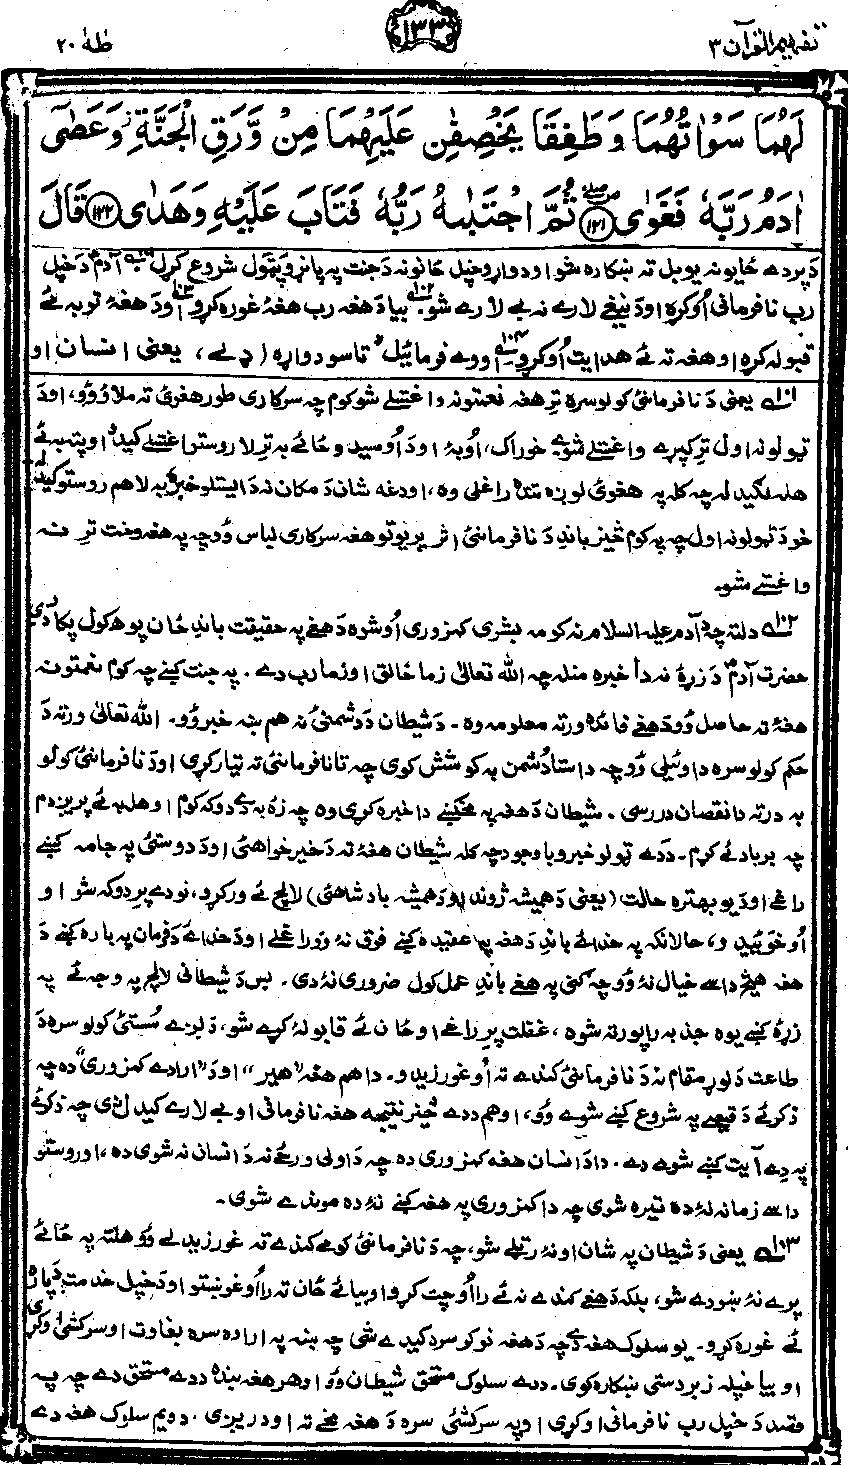 تفہیم القرآن ۳
۱۳۳
طٰهٰ ۲۰
لَهُمَا سَوْاٰتُهُمَا وَطَفِقَا يَخْصِفٰنِ عَلَيْهِمَا مِنْ وَّرَقِ الْجَنَّةِ ز وَعَصٰٓى
اٰدَمُ رَبَّهٗ فَغَوٰى ۱۲۱ ثُمَّ اجْتَبٰىهُ رَبُّهٗ فَتَابَ عَلَيْهِ وَهَدٰى ۱۲۲ قَالَ
د پردے ځایونه یو بل ته ښکاره شو اودواړو خپل ځانونه د جنت په پاڼو پټول شروع کړل آدمؑ د خپل
رب نافرمانی اُوکړه اود نیغے لارے نه بے لارے شو ۱۰۲ بیا د هغه رب هغه غوره کړو ۱۰۳ اود هغهٔ توبه ئے
قبوله کړه او هغه ته ئے هدایت اُوکړو ۱۰۴ اووے فرمائیل، تاسو دواړه (دلے، یعنی انسان او
۱۰۱ یعنی د نافرمانئ کولو سره ترِ هغه نعمتونه واغستلے شو کوم چه سرکاری طور هغوئ ته ملاؤ وُو، اود
ټولو نه اول ترِ کپړے واغستلے شوے خوراک، اُوبهٔ اود اُوسیدو ځائے به ترِ لا روستو اغستلے کیدۀ او پته به ئے
هله لگیدله چه کله په هغوئ لوږه تنده راغلی وه، اودغه شان د مکان نه د ایستلو خبره به لا هم روستو کیده
خو د ټولو نه اول چه په کوم څیز باندِ د نافرمانئ اثر پریوتو هغه سرکاری لباس وُو چه په هغه وخت ترِ نه
واغستے شو۔
۱۰۲ دلته چه د آدم علیه السلام نه کومه بشری کمزوری اُوشوه د هغے په حقیقت باندِ ځان پوهه کول پکار دی
حضرت آدمؑ د زړهٔ نه دا خبره منله چه الله تعالیٰ زما خالق او زما رب دے۔ په جنت کښے چه کوم نعمتونه
هغهٔ ته حاصل وُو د هغے فائده ورته معلومه وه۔ د شیطان د دشمنئ نه هم ښه خبر وُو۔ الله تعالیٰ ورته د
حکم کولو سره دا وئیلی وُو چه دا ستا دُشمن به کوشش کوی چه تا نافرمانئ ته تیار کړی اود نافرمانئ کولو
به درته دا نقصان در رسی۔ شیطان د هغه په مخکښے دا خبره کړی وه چه زهٔ به دے دوکه کوم او هله به ئے پریږدم
چه برباد ئے کړم۔ د دے ټولو خبرو باوجود چه کله شیطان هغهٔ ته د خیر خواهئ اود دوستئ په جامه کښے
راغے اود یو بهتره حالت (یعنی د همیشه ژوند اود همیشه بادشاهئ) لالچ ئے ورکړو، نو دے پرِ دوکه شو او
اُوخوئیدو، حالانکه په خدائے باندِ د هغه په عقیده کښے فرق نهٔ وُو راغلے اود خدائے د فرمان په باره کښے د
هغه هیڅ داسے خیال نهٔ وُو چه ګنی په هغے باندِ عمل کول ضروری نهٔ دی۔ بس د شیطانی لالچ په وجه ئے په
زړهٔ کښے یوه جذبه راپورته شوه، غفلت پرِ راغے او ځان ئے قابو لهٔ کړے شو، د لږے سُستئ کولو سره د
طاعت د لوړ مقام نه د نافرمانئ کندے ته اُوغورزیدو۔ دا هم هغه "هیر" اود "ارادے کمزوری" ده چه
ذکر ئے د قیصے په شروع کښے شوے وُو، او هم د دے څیز نتیجه هغه نافرمانی او بے لارے کیدل دی چه ذکر ئے
په دے آیت کښے شوے دے۔ دا د انسان هغه کمزوری ده چه د اولی ورځے نه د انسان نه شوی ده، او روستو
داسے زمانه نهٔ ده تیره شوی چه دا کمزوری په هغه کښے نهٔ ده موندلے شوی۔
۱۰۳ یعنی د شیطان په شان اونهٔ رټلے شو، چه د نافرمانئ کومے کندے ته غورزیدلے وُو هلته په ځائے
پرے نهٔ ښودے شو، بلکه د هغے کندے نه ئے را اُوچت کړو او بیا ئے ځان ته را اُوغوښتو اود خپل خدمت دپاره
ئے غوره کړو۔ یو سلوک هغه دے چه د هغه نوکر سره کیدے شی چه ښه په اراده سره بغاوت او سرکشی وکړی
او بیا خپله زبردستی ښکاره کوی۔ د دے سلوک مستحق شیطان وُو او هر هغه بنده د دے مستحق دے چه په
قصد د خپل رب نافرمانی اوکړی او په سرکشئ سره د هغه مخے ته اودریږی۔ دویم سلوک هغه دے